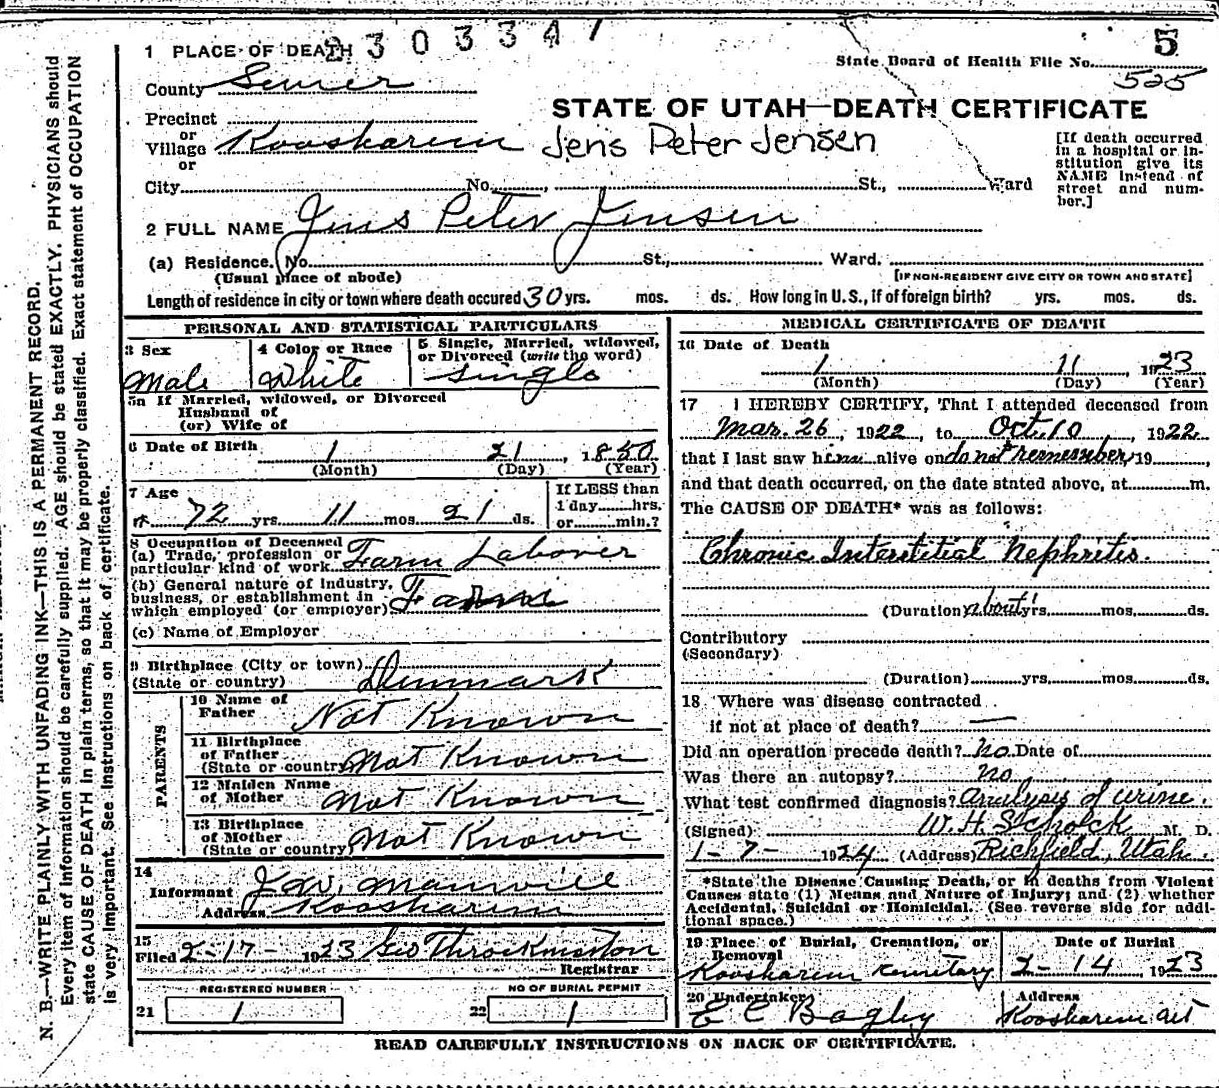 2303347
5
1 PLACE OF DEATH
State Board of Health File No. 525
County Sevier
STATE OF UTAH—DEATH CERTIFICATE
Precinct
or
Village Koosharem
Jens Peter Jensen
or
City No. , St., Ward
[If death occurred
in a hospital or in-
stitution give its
NAME instead of
street and num-
ber.]
2 FULL NAME Jens Peter Jensen
(a) Residence. No. St., Ward.
(Usual place of abode) [IF NON-RESIDENT GIVE CITY OR TOWN AND STATE]
Length of residence in city or town where death occured 30 yrs. mos. ds. How long in U. S., if of foreign birth? yrs. mos. ds.
PERSONAL AND STATISTICAL PARTICULARS
3 Sex
Male
4 Color or Race
White
5 Single, Married, widowed,
or Divorced (write the word)
Single
5a If Married, widowed, or Divorced
Husband of
(or) Wife of
6 Date of Birth 1 21 , 1850
(Month) (Day) (Year)
7 Age
72 yrs. 11 mos. 21 ds.
If LESS than
1 day hrs.
or min.?
8 Occupation of Deceased
(a) Trade, profession or
particular kind of work Farm Laborer
(b) General nature of Industry,
business, or establishment in
which employed (or employer)
(c) Name of Employer
9 Birthplace (City or town)
(State or country) Denmark
PARENTS
10 Name of
Father Not Known
11 Birthplace
of Father
(State or country) Not Known
12 Maiden Name
of Mother Not Known
13 Birthplace
of Mother
(State or country) Not Known
14
Informant J. W. Manwill
Address Koosharem
15
Filed 2-17- 1923 Geo Throckmorton
Registrar
REGISTERED NUMBER
21 1
NO OF BURIAL PERMIT
22 1
MEDICAL CERTIFICATE OF DEATH
16 Date of Death
1 11 , 1923
(Month) (Day) (Year)
17 I HEREBY CERTIFY, That I attended deceased from
Mar. 26 , 1922, to Oct. 10 , 1922
that I last saw him alive on do not remember, 19
and that death occurred, on the date stated above, at m.
The CAUSE OF DEATH* was as follows:
Chronic Interstitial Nephritis.
(Duration) about 1 yrs. mos. ds.
Contributory
(Secondary)
(Duration) yrs. mos. ds.
18 Where was disease contracted
if not at place of death? —
Did an operation precede death? No Date of
Was there an autopsy? No
What test confirmed diagnosis? Analysis of urine.
(Signed) W. H. St M. D.
1-7- 1924 (Address) Richfield, Utah.
*State the Disease Causing Death, or in deaths from Violent
Causes state (1) Means and Nature of Injury; and (2) whether
Accidental, Suicidal or Homicidal. (See reverse side for addi-
tional space.)
19 Place of Burial, Cremation, or
Removal
Koosharem Cemetary
Date of Burial
2-14 , 1923
20 Undertaker
E C Bagley
Address
Koosharem
READ CAREFULLY INSTRUCTIONS ON BACK OF CERTIFICATE.
N. B.—WRITE PLAINLY WITH UNFADING INK—THIS IS A PERMANENT RECORD.
Every item of information should be carefully supplied. AGE should be stated EXACTLY. PHYSICIANS should
state CAUSE OF DEATH in plain terms, so that it may be properly classified. Exact statement of OCCUPATION
is very important. See Instructions on back of certificate.